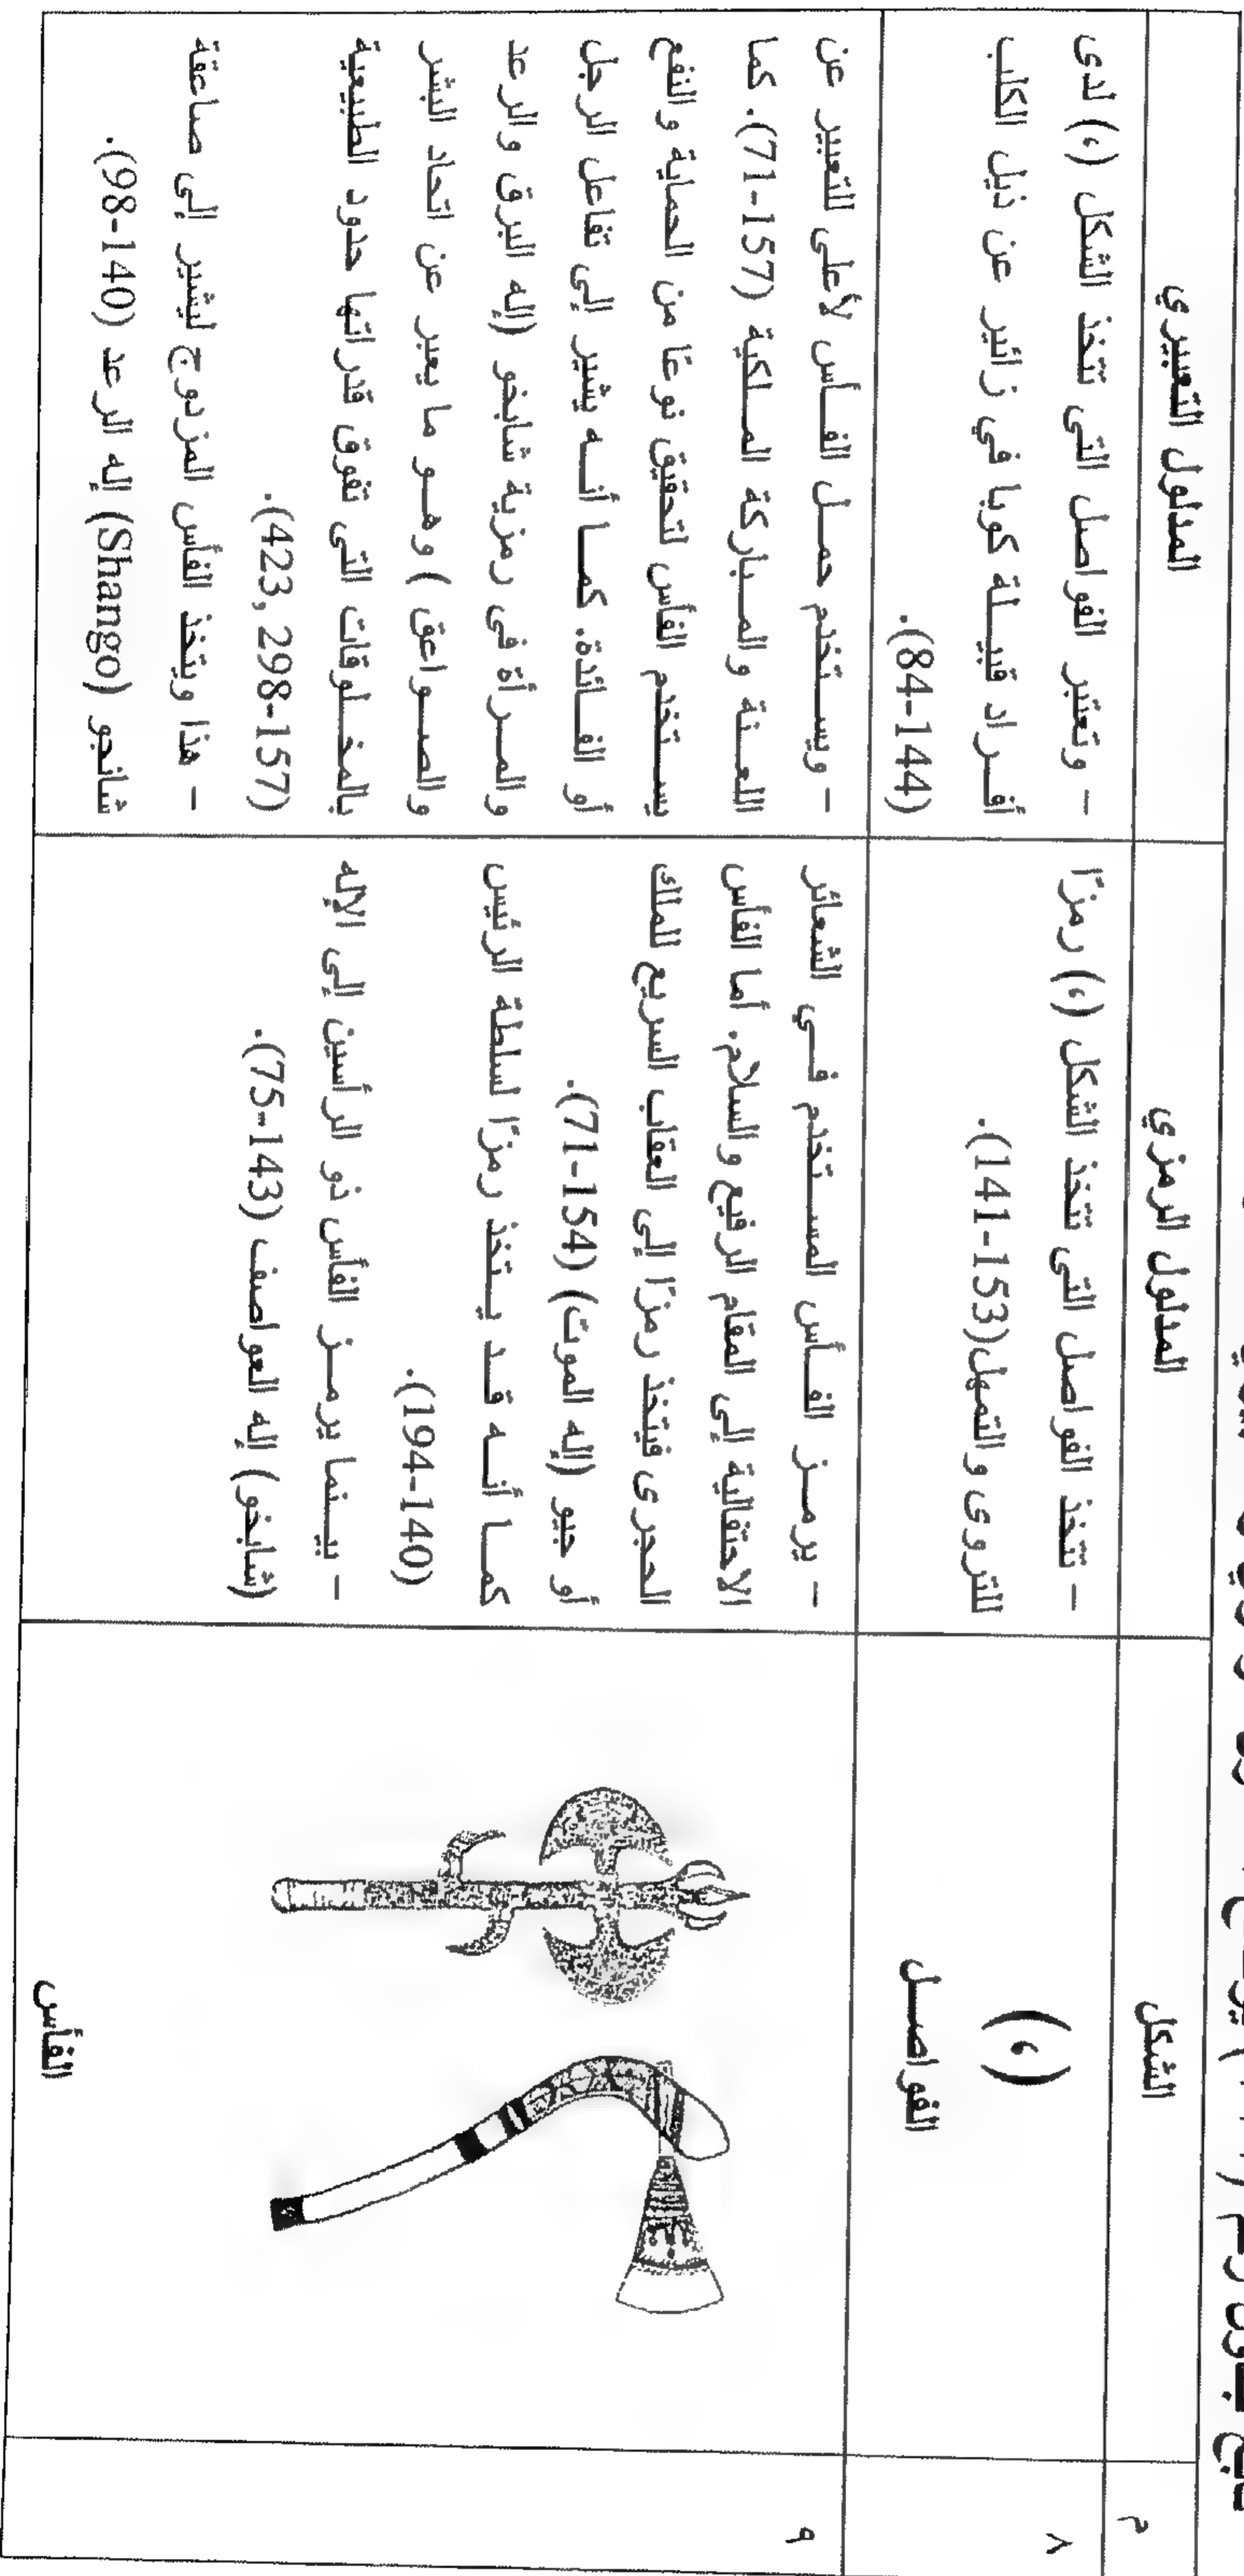 م
الشكل
المدلول الرمزي
المدلول التعبيري
٨
(،)
الفواصل
- تتخذ الفواصل التى تتخذ الشكل (،) رمزًا
للتروى والتمهل(153-141).
- وتعتبر الفواصل التى تتخذ الشكل (،) لدى
أفراد قبيلة كوبا في زائير عن ذيل الكلب
(144-84).
٩
الفأس
- يرمز الفأس المستخدم في الشعائر
الاحتفالية إلى المقام الرفيع والسلام. أما الفأس
الحجرى فيتخذ رمزًا إلى العقاب السريع للملك
أو جيو (إله الموت) (154-71).
كما أنه قد يتخذ رمزًا لسلطة الرئيس
(140-194).
- بينما يرمز الفأس ذو الرأسين إلى الإله
(شابخو) إله العواصف (143-75).
- ويستخدم حمل الفأس لأعلى للتعبير عن
اللعنة والمباركة الملكية (157-71). كما
يستخدم الفأس لتحقيق نوعًا من الحماية والنفع
أو الفائدة. كما أنه يشير إلى تفاعل الرجل
والمرأة فى رمزية شابخو (إله البرق والرعد
والصواعق) وهو ما يعبر عن اتحاد البشر
بالمخلوقات التى تفوق قدراتها حدود الطبيعية
(157-298 ,423).
- هذا ويتخذ الفأس المزدوج ليشير إلى صاعقة
شانجو (Shango) إله الرعد (140-98).